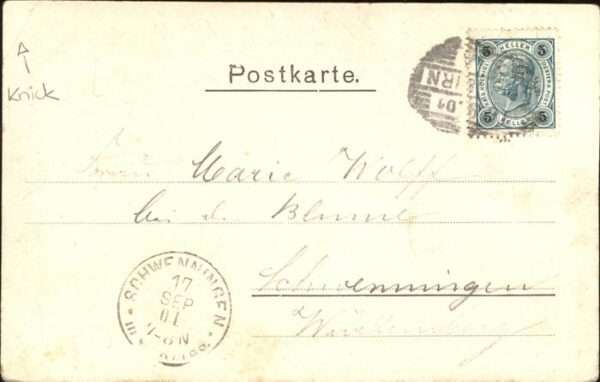 Knick
Postkarte.
5 HELLER 5
5 HELLER 5
RN
.01
Frau Marie Wolff
bei d. Blume
Schwenningen
Württemberg
SCHWENNINGEN
17
SEP
01
7-8 N
III